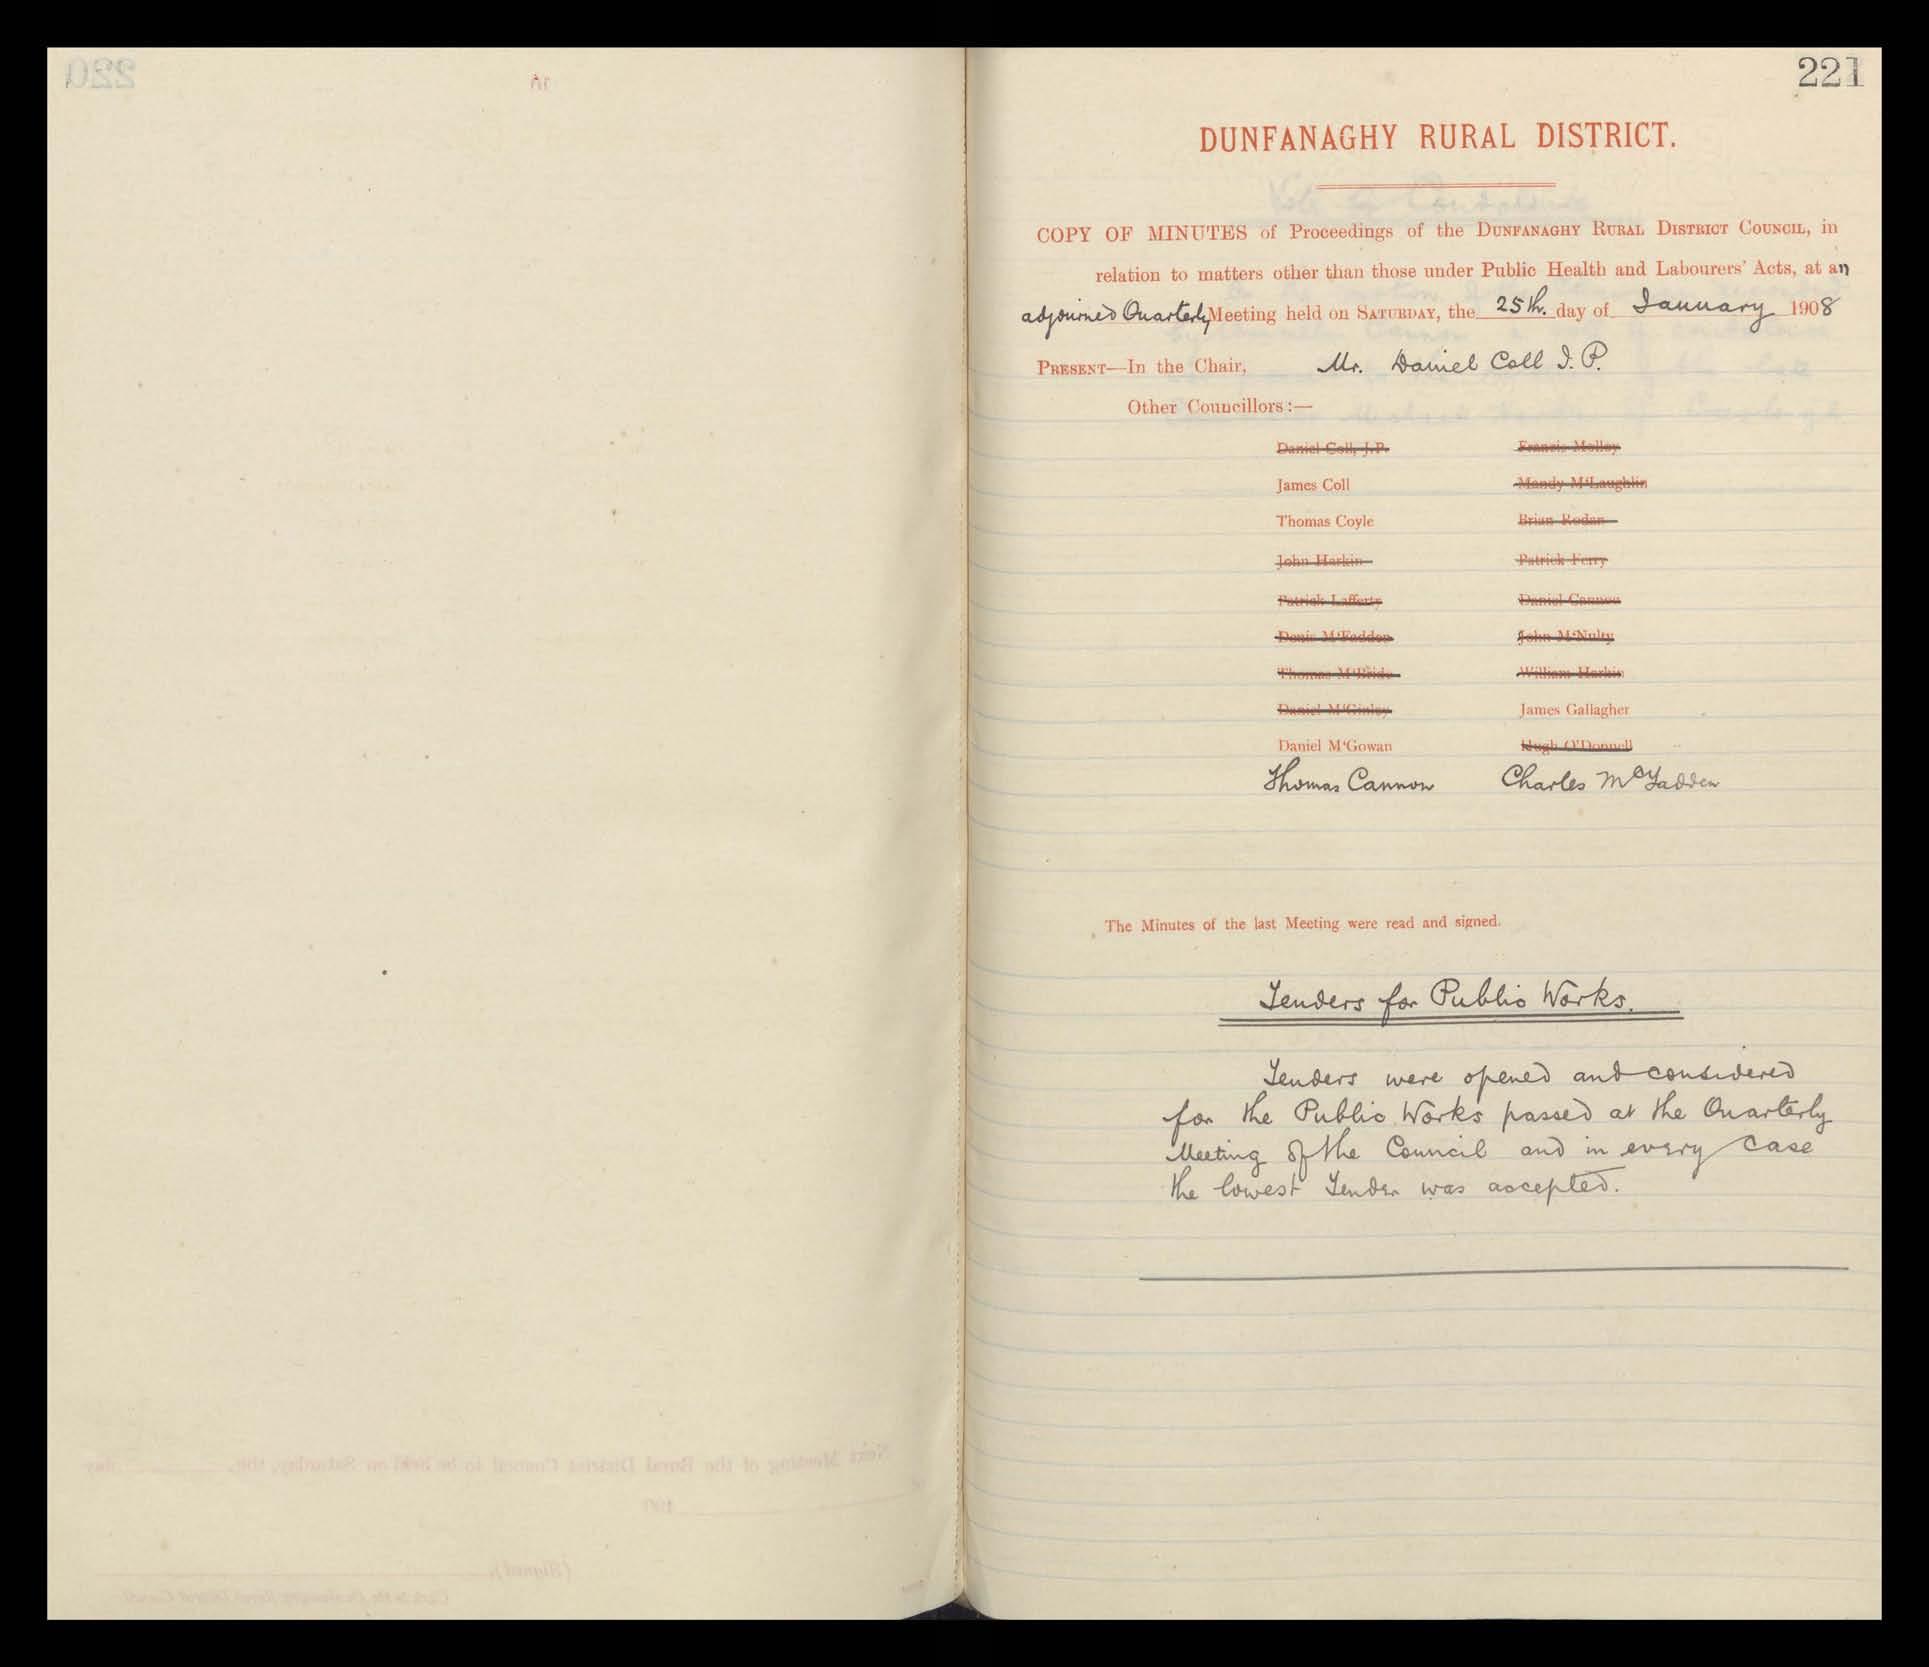 221
DUNFANAGHY RURAL DISTRICT.
COPY OF MINUTES of Proceedings of the DUNFANAGHY RURAL DISTRICT COUNCIL, in
relation to matters other than those under Public Health and Labourers' Acts, at an
adjourned Quarterly Meeting held on SATURDAY, the 25th. day of January 1908
PRESENT—In the Chair, Mr. Daniel Coll J.P.
Other Councillors:—
Daniel Coll, J.P. Francis Molloy
James Coll Mandy M'Laughlin
Thomas Coyle Brian Rodan
John Harkin Patrick Ferry
Patrick Lafferty Daniel Cannon
Denis M'Fadden John M'Nulty
Thomas M'Bride William Harkin
Daniel M'Ginley James Gallagher
Daniel M'Gowan Hugh O'Donnell
Thomas Cannon Charles McFadden
The Minutes of the last Meeting were read and signed.
Tenders for Public Works.
Tenders were opened and considered
for the Public Works passed at the Quarterly
Meeting of the Council and in every case
the lowest Tender was accepted.